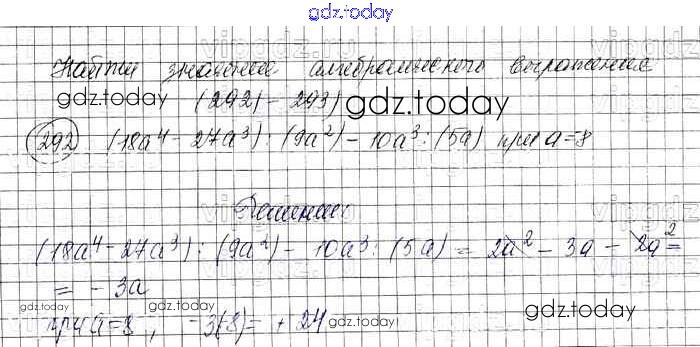 gdz.today
Найти значение алгебраического выражения
gdz.today (292) - 293) gdz.today
292 (18a⁴ - 27a³) : (9a²) - 10a³ : (5a) при a = -8
Решение:
(18a⁴ - 27a³) : (9a²) - 10a³ : (5a) = 2a² - 3a - 2a² =
= - 3a
gdz.today gdz.today gdz.today
при a = -8, -3(-8) = + 24 gdz.today